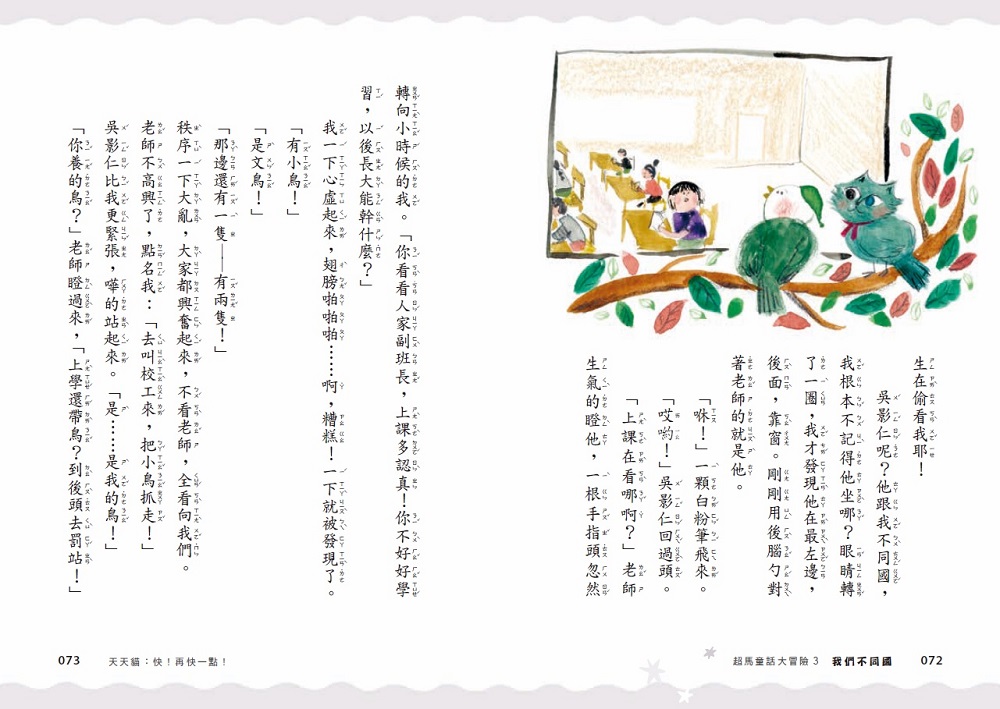 生在偷看我耶!
吳影仁呢?他跟我不同國,
我根本不記得他坐哪?眼睛轉
了一圈,我才發現他在最左邊,
後面,靠窗。剛剛用後腦勺對
著老師的就是他。
「咻!」一顆白粉筆飛來。
「哎喲!」吳影仁回過頭。
「上課在看哪啊?」老師
生氣的瞪他,一根手指頭忽然
072
超馬童話大冒險 3 我們不同國
轉向小時候的我。「你看看人家副班長,上課多認真!你不好好學
習,以後長大能幹什麼?」
我一下心虛起來,翅膀啪啪啪……啊,糟糕!一下就被發現了。
「有小鳥!」
「是文鳥!」
「那邊還有一隻——有兩隻!」
秩序一下大亂,大家都興奮起來,不看老師,全看向我們。
老師不高興了,點名我:「去叫校工來,把小鳥抓走!」
吳影仁比我更緊張,嘩的站起來。「是……是我的鳥!」
「你養的鳥?」老師瞪過來,「上學還帶鳥?到後頭去罰站!」
073
天天貓:快!再快一點!